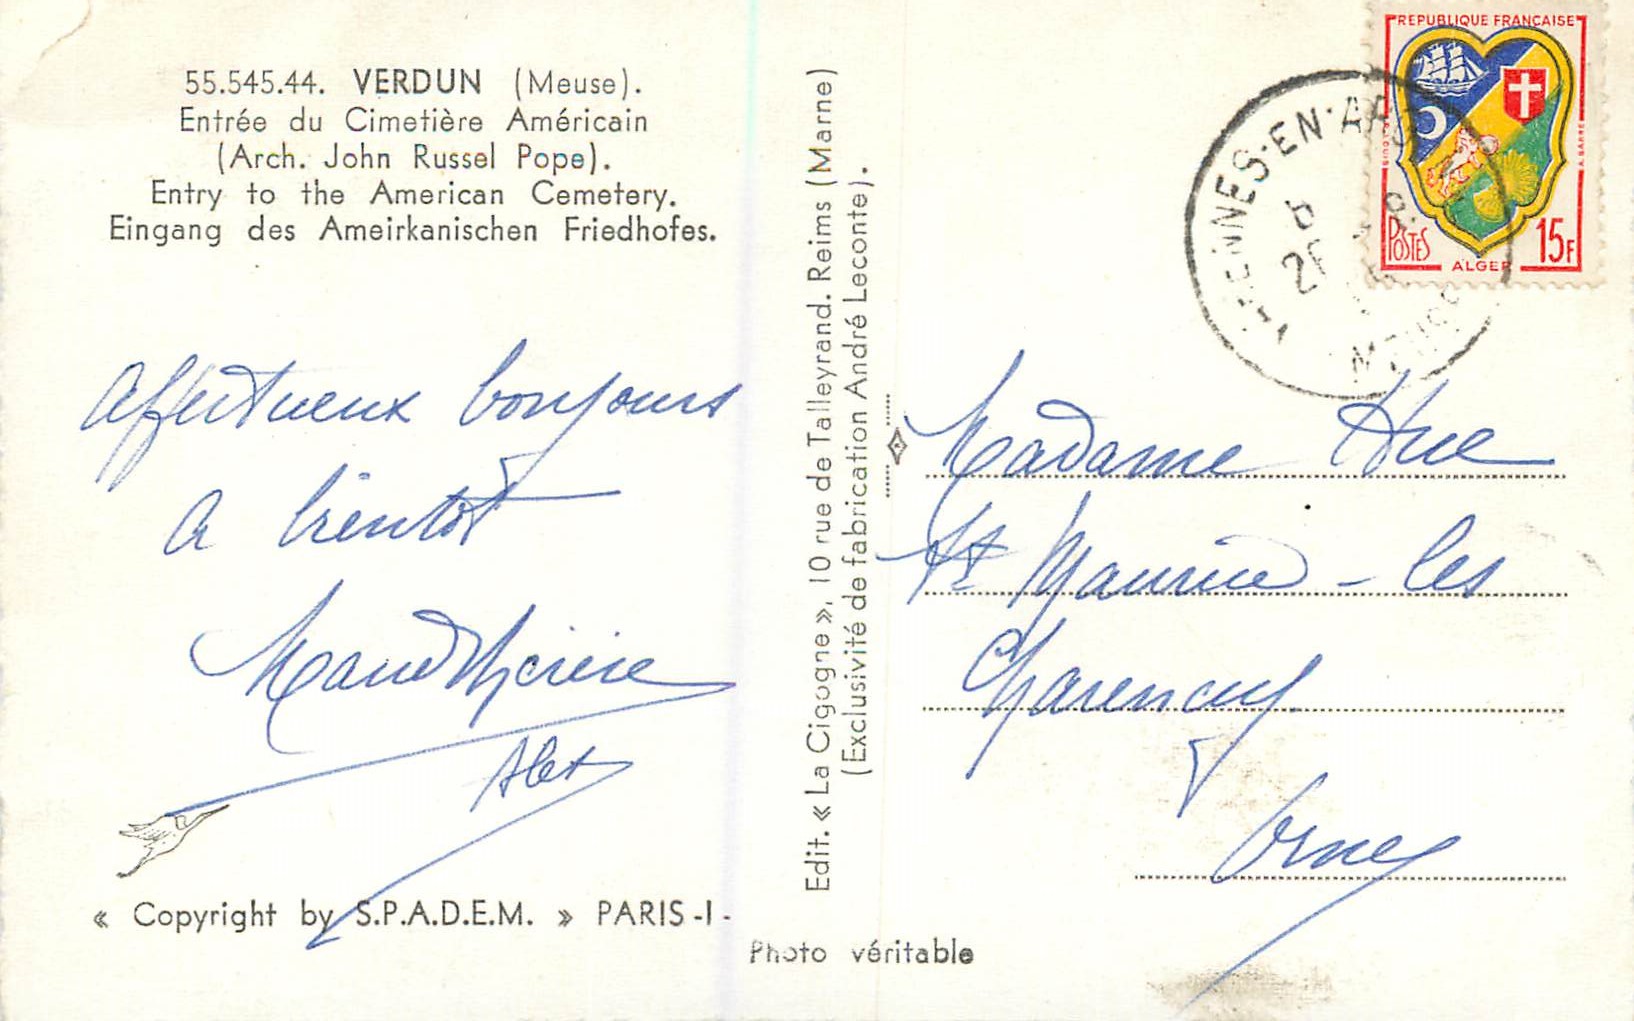 55.545.44. VERDUN (Meuse).
Entrée du Cimetière Américain
(Arch. John Russel Pope).
Entry to the American Cemetery.
Eingang des Ameirkanischen Friedhofes.
Affectueux bonjours
a bientôt
« Copyright by S.P.A.D.E.M. » PARIS -I-
Edit. « La Cigogne », 10 rue de Talleyrand. Reims (Marne)
(Exclusivité de fabrication André Leconte).
Photo véritable
REPUBLIQUE FRANÇAISE
POSTES
ALGER
15F
Madame Hue
St Maurice - les
Charencey
Orne